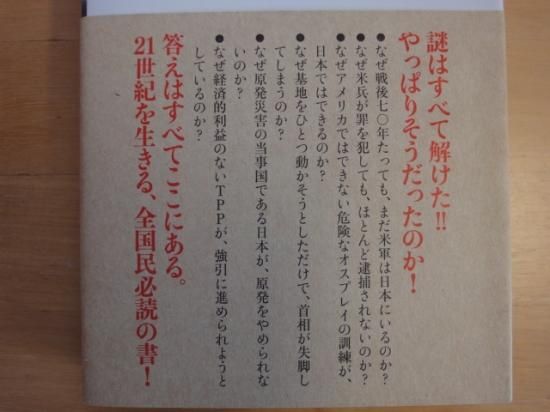 謎はすべて解けた!!
やっぱりそうだったのか!
●なぜ戦後七〇年たっても、まだ米軍は日本にいるのか?
●なぜ米兵が罪を犯しても、ほとんど逮捕されないのか?
●なぜアメリカではできない危険なオスプレイの訓練が、
日本ではできるのか?
●なぜ基地をひとつ動かそうとしただけで、首相が失脚し
てしまうのか?
●なぜ原発災害の当事国である日本が、原発をやめられな
いのか?
●なぜ経済的利益のないTPPが、強引に進められようと
しているのか?
答えはすべてここにある。
21世紀を生きる、全国民必読の書!